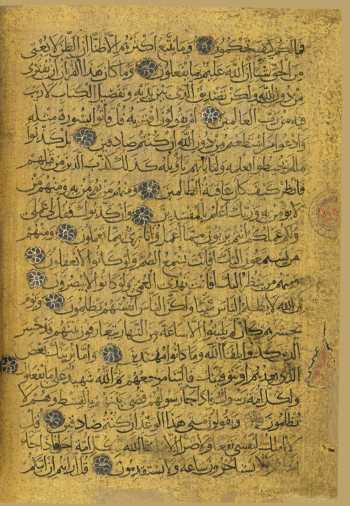 فما لكم كيف تحكمون وما يتبع اكثرهم الا ظنا ان الظن لا يغني
من الحق شيئا ان الله عليم بما يفعلون وما كان هذا القران ان يفترى
من دون الله ولكن تصديق الذي بين يديه وتفصيل الكتاب لا ريب
فيه من رب العالمين ام يقولون افتريه قل فاتوا بسورة مثله
وادعوا من استطعتم من دون الله ان كنتم صادقين بل كذبوا
بما لم يحيطوا بعلمه ولما ياتهم تاويله كذلك كذب الذين من قبلهم
فانظر كيف كان عاقبة الظالمين ومنهم من يؤمن به ومنهم من
لا يؤمن به وربك اعلم بالمفسدين وان كذبوك فقل لي عملي
ولكم عملكم انتم بريئون مما اعمل وانا بريء مما تعملون ومنهم
من يستمعون اليك افانت تسمع الصم ولو كانوا لا يعقلون
ومنهم من ينظر اليك افانت تهدي العمي ولو كانوا لا يبصرون
ان الله لا يظلم الناس شيئا ولكن الناس انفسهم يظلمون ويوم
يحشرهم كان لم يلبثوا الا ساعة من النهار يتعارفون بينهم قد خسر
الذين كذبوا بلقاء الله وما كانوا مهتدين واما نرينك بعض
الذي نعدهم او نتوفينك فالينا مرجعهم ثم الله شهيد على ما يفعلون
ولكل امة رسول فاذا جاء رسولهم قضي بينهم بالقسط وهم لا
يظلمون ويقولون متى هذا الوعد ان كنتم صادقين قل
لا املك لنفسي ضرا ولا نفعا الا ما شاء الله لكل امة اجل اذا جاء
اجلهم فلا يستاخرون ساعة ولا يستقدمون قل ارايتم ان اتيكم